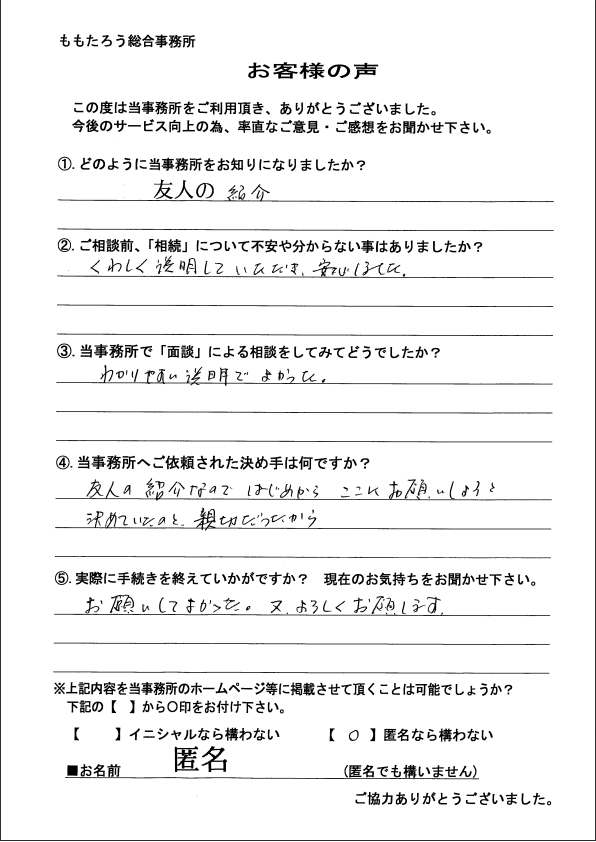 ももたろう総合事務所
お客様の声
この度は当事務所をご利用頂き、ありがとうございました。
今後のサービス向上の為、率直なご意見・ご感想をお聞かせ下さい。
①. どのように当事務所をお知りになりましたか？
友人の 紹介
②. ご相談前、「相続」について不安や分からない事はありましたか？
くわしく説明していただき、安心しました。
③. 当事務所で「面談」による相談をしてみてどうでしたか？
わかりやすい説明でよかった。
④. 当事務所へご依頼された決め手は何ですか？
友人の紹介なので はじめから ここに お願いしようと
決めていたのと、親切だったから
⑤. 実際に手続きを終えていかがですか？　現在のお気持ちをお聞かせ下さい。
お願いしてよかった。又、よろしくお願します。
※上記内容を当事務所のホームページ等に掲載させて頂くことは可能でしょうか？
下記の【　】から〇印をお付け下さい。
【　　】イニシャルなら構わない　　【　〇　】匿名なら構わない
■お名前　匿名　（匿名でも構いません）
ご協力ありがとうございました。